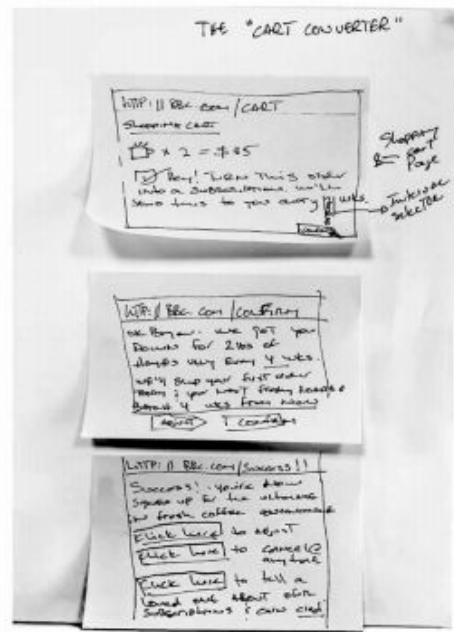 THE "CART CONVERTER"
HTTP://BBC.COM/CART
SHOPPING CART
x 2 = $35
Hey! Turn this order
into a subscription. We'll
send this to you every wks.
Shopping
cart
Page
Interval
selector
HTTP://BBC.COM/CONFIRM
OK Bryan. We got you
down for 2 lbs of
every 4 wks.
We'll ship your first order
today & your next
4 wks from now
ADJUST CONFIRM
HTTP://BBC.COM/SUCCESS!!
Success! You're now
signed up for the ultimate
in fresh coffee
Click here to adjust
Click here to cancel @
anytime
Click here to tell a
loved one about our
subscriptions & earn cred